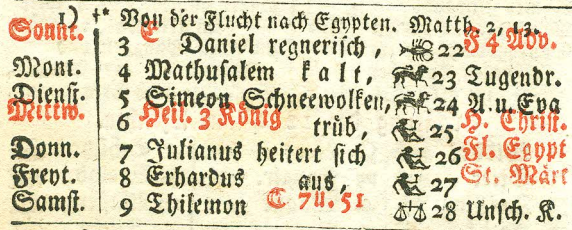 1) Von der Flucht nach Egypten. Matth. 2, 13.
Sonnt. 3 E Daniel regnerisch, 22 F 4 Adv.
Mont. 4 Mathusalem kalt, 23 Tugendr.
Dienst. 5 Simeon Schneewolken, 24 A. u. Eva
Mittw. 6 Heil. 3 König trüb, 25 H. Christ.
Donn. 7 Julianus heitert sich 26 Fl. Egypt
Freyt. 8 Erhardus aus, 27 St. Märt
Samst. 9 Thilemon 7 U. 51 28 Unsch. K.